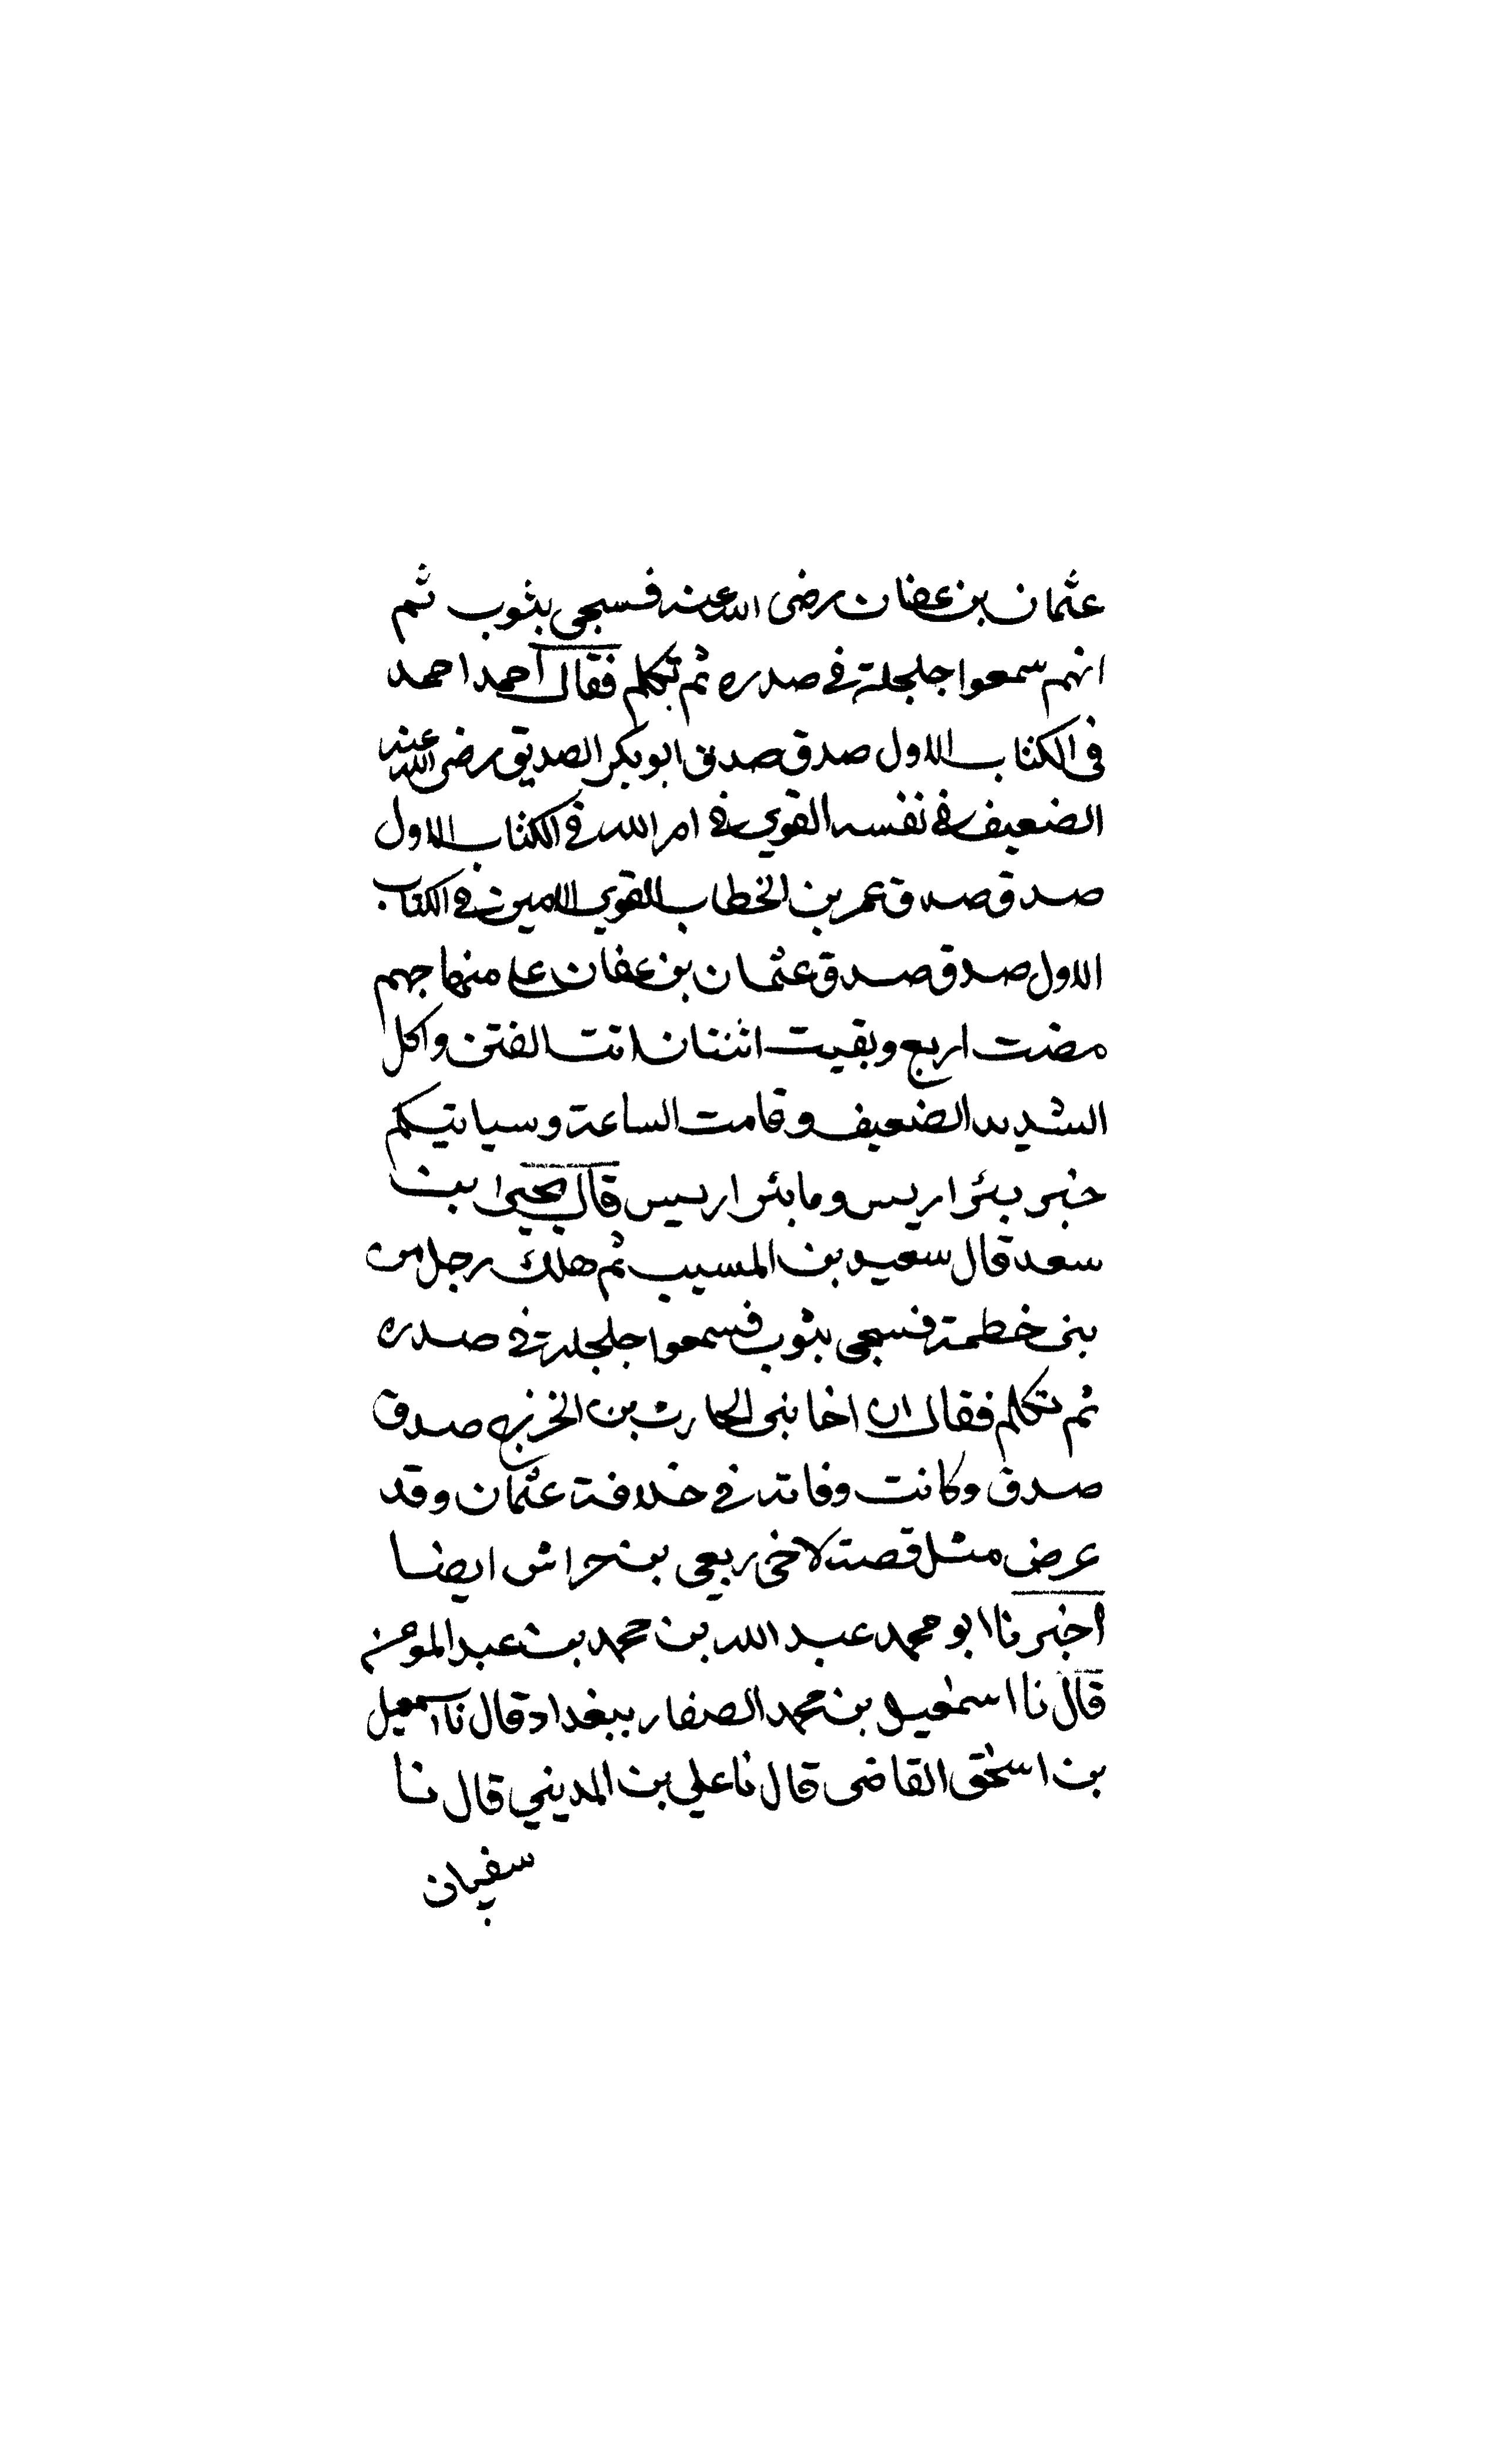 عثمان بن عفان رضى الله عنه فسجى بثوب ثم
انهم سمعوا جلجلة في صدره ثم تكلم فقال احمد احمد
في الكتاب الاول صدق صدق ابو بكر الصديق رضى الله عنه
الضعيف في نفسه القوي في امر الله في الكتاب الاول
صدق صدق عمر بن الخطاب القوي الامين في الكتاب
الاول صدق صدق عثمان بن عفان على منهاجهم
مضت اربع وبقيت اثنتان اتت الفتن واكل
الشديد الضعيف وقامت الساعة وسياتيكم
خبر بئر اريس وما بئر اريس قال يحيى بن
سعد قال سعيد بن المسيب ثم هلك رجل من
بنى خطمة فسجى بثوب فسمعوا جلجلة في صدره
ثم تكلم فقال ان اخا بنى الحارث بن الخزرج صدق
صدق وكانت وفاته في خلافة عثمان وقد
عرض مثل قصته لاخى ربعى بن حراش ايضا
اخبرنا ابو محمد عبد الله بن محمد بن عبد المومن
قال نا اسمعيل بن محمد الصفار ببغداد قال نا اسمعيل
بن اسحق القاضى قال نا علي بن المديني قال نا
سفيان